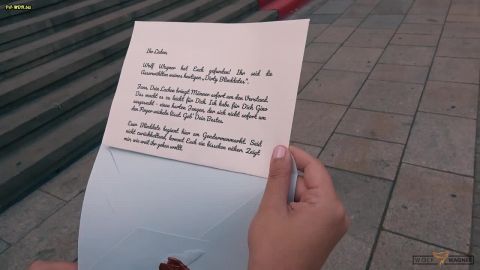 Ihr Lieben,
Wolf Wagner hat Euch gefunden! Ihr seid die
Auserwählten meines heutigen „Dirty Blinddates".
Jana, Dein Lachen bringt Männer sofort um den Verstand.
Das macht es so leicht für Dich. Ich habe für Dich Gino
ausgesucht - einen harten Jungen, der sich nicht sofort um
den Finger wickeln lässt. Gib' Dein Bestes.
Euer Blinddate beginnt hier am Gendarmenmarkt. Seid
nicht zurückhaltend, kommt Euch ein bisschen näher. Zeigt
mir, wie weit ihr gehen wollt.
WOLF WAGNER